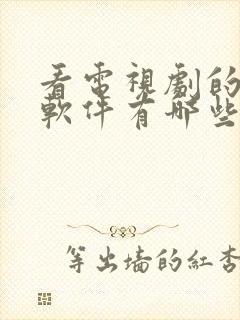 看電視劇的
軟件有哪些
等出墻的紅杏